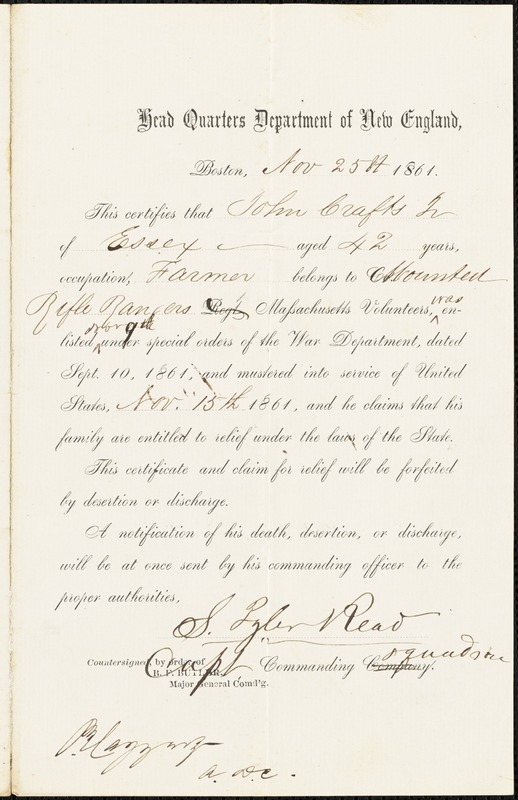 Head Quarters Department of New England,
Boston, Nov 25th 1861.
This certifies that John Crafts Jr
of Essex aged 42 years,
occupation, Farmer belongs to Mounted
Rifle Rangers Regt. Massachusetts Volunteers, was en-
listed Nov 9th under special orders of the War Department, dated
Sept. 10, 1861, and mustered into service of United
States, Nov. 15th 1861, and he claims that his
family are entitled to relief under the laws of the State.
This certificate and claim for relief will be forfeited
by desertion or discharge.
A notification of his death, desertion, or discharge,
will be at once sent by his commanding officer to the
proper authorities,
S. Tyler Read
Capt. Commanding Company. Squadron
Countersigned, by order of
B. F. BUTLER,
Major General Comd'g.
a. d. c.